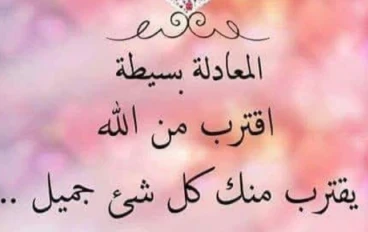 المعادلة بسيطة
اقترب من الله
يقترب منك كل شئ جميل ..